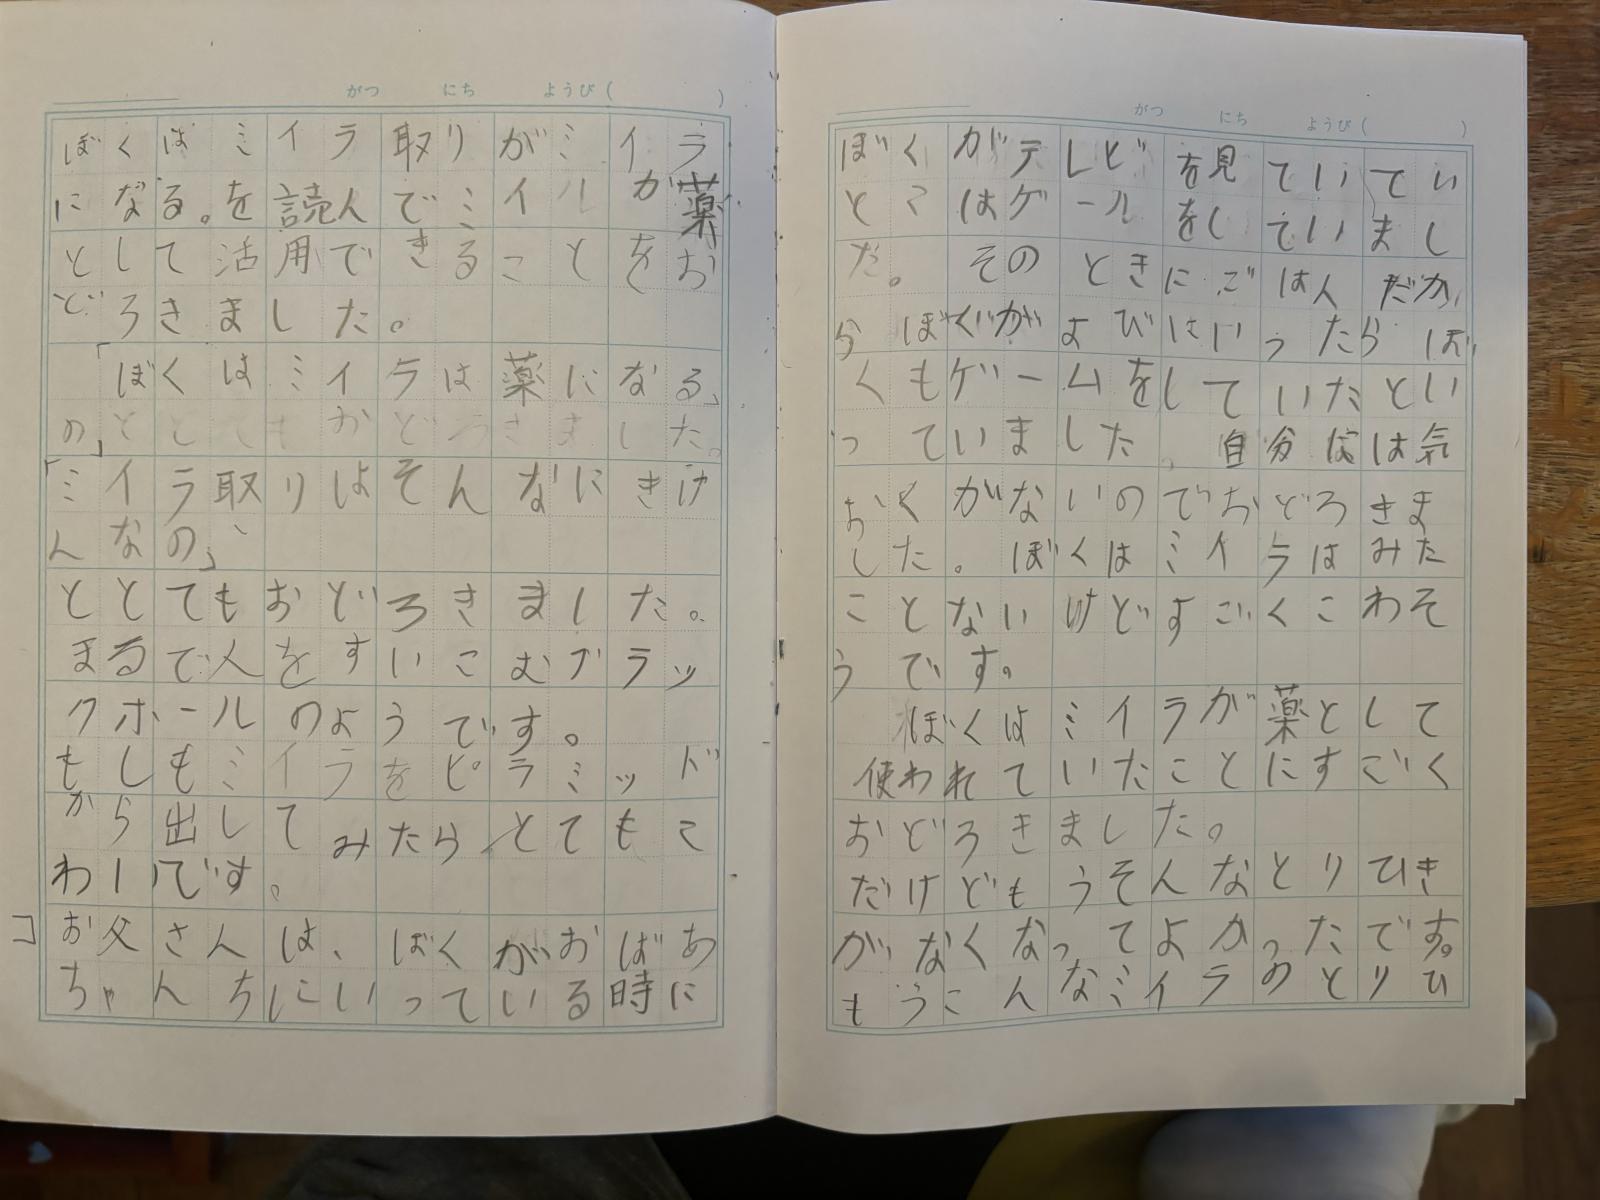 がつ にち ようび( )
ぼくはミイラ取りがミイラ
になる。を読んでミイルが薬
として活用できることをお
どろきました。
「ぼくはミイラは薬になる
の」ととてもおどろきました。
「ミイラ取りはそんなにきけ
んなの」
ととてもおどろきました。
まるで人をすいこむブラッ
クホールのようです。
もしもミイラをピラミッド
から出してみたらとてもこ
わいです。
お父さんは、ぼくがおばあ
ちゃんちにいっている時に
がつ にち ようび( )
ぼくがテレビを見ていてい
とこはゲールをしていまし
た。そのときにごはんだか
らぼくがよびにいったらぼ
くもゲームをしていたとい
っていました。自分ばは気
おくがないのでおどろきま
した。ぼくはミイラはみた
ことないけどすごくこわそ
うです。
ぼくはミイラが薬として
使われていたことにすごく
おどろきました。
だけどもうそんなとりひき
がなくなってよかったです。
もうこんなミイラのとりひ